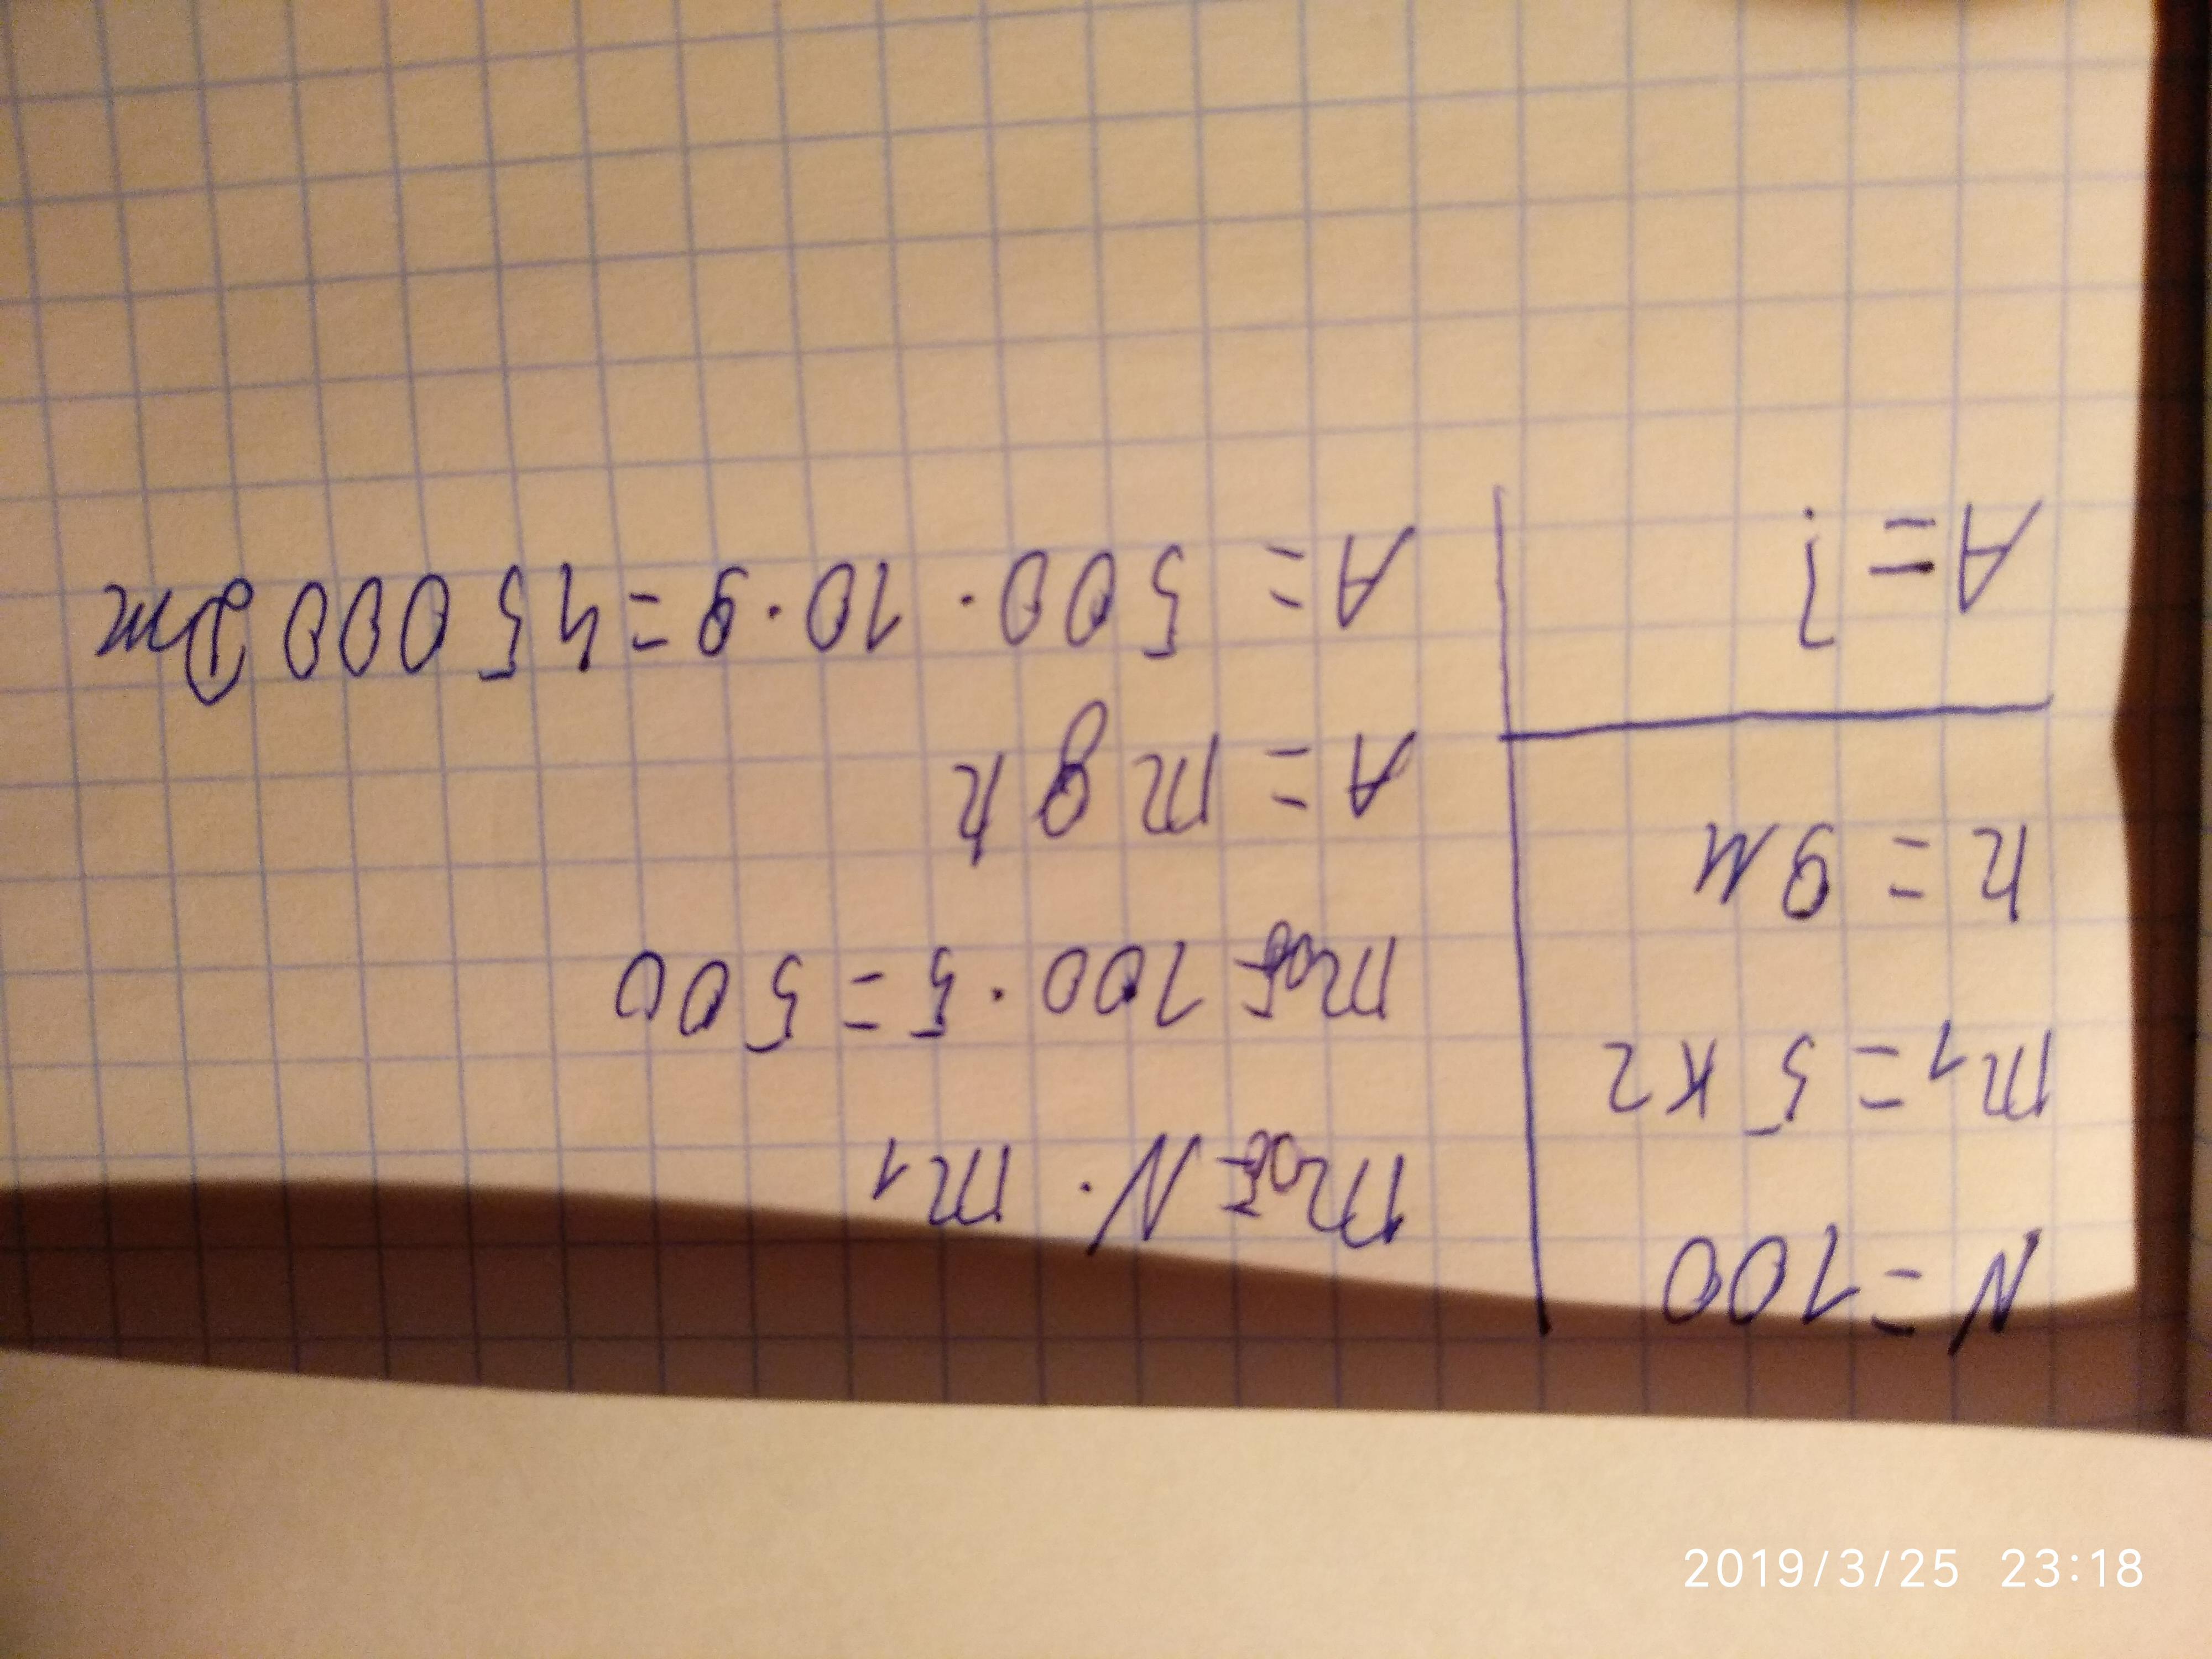 N=100
m1=5 кг
h=9м
A=?
mоб=N·m1
mоб=100·5=500
A=mgh
A=500·10·9=45000Дж
2019/3/25 23:18